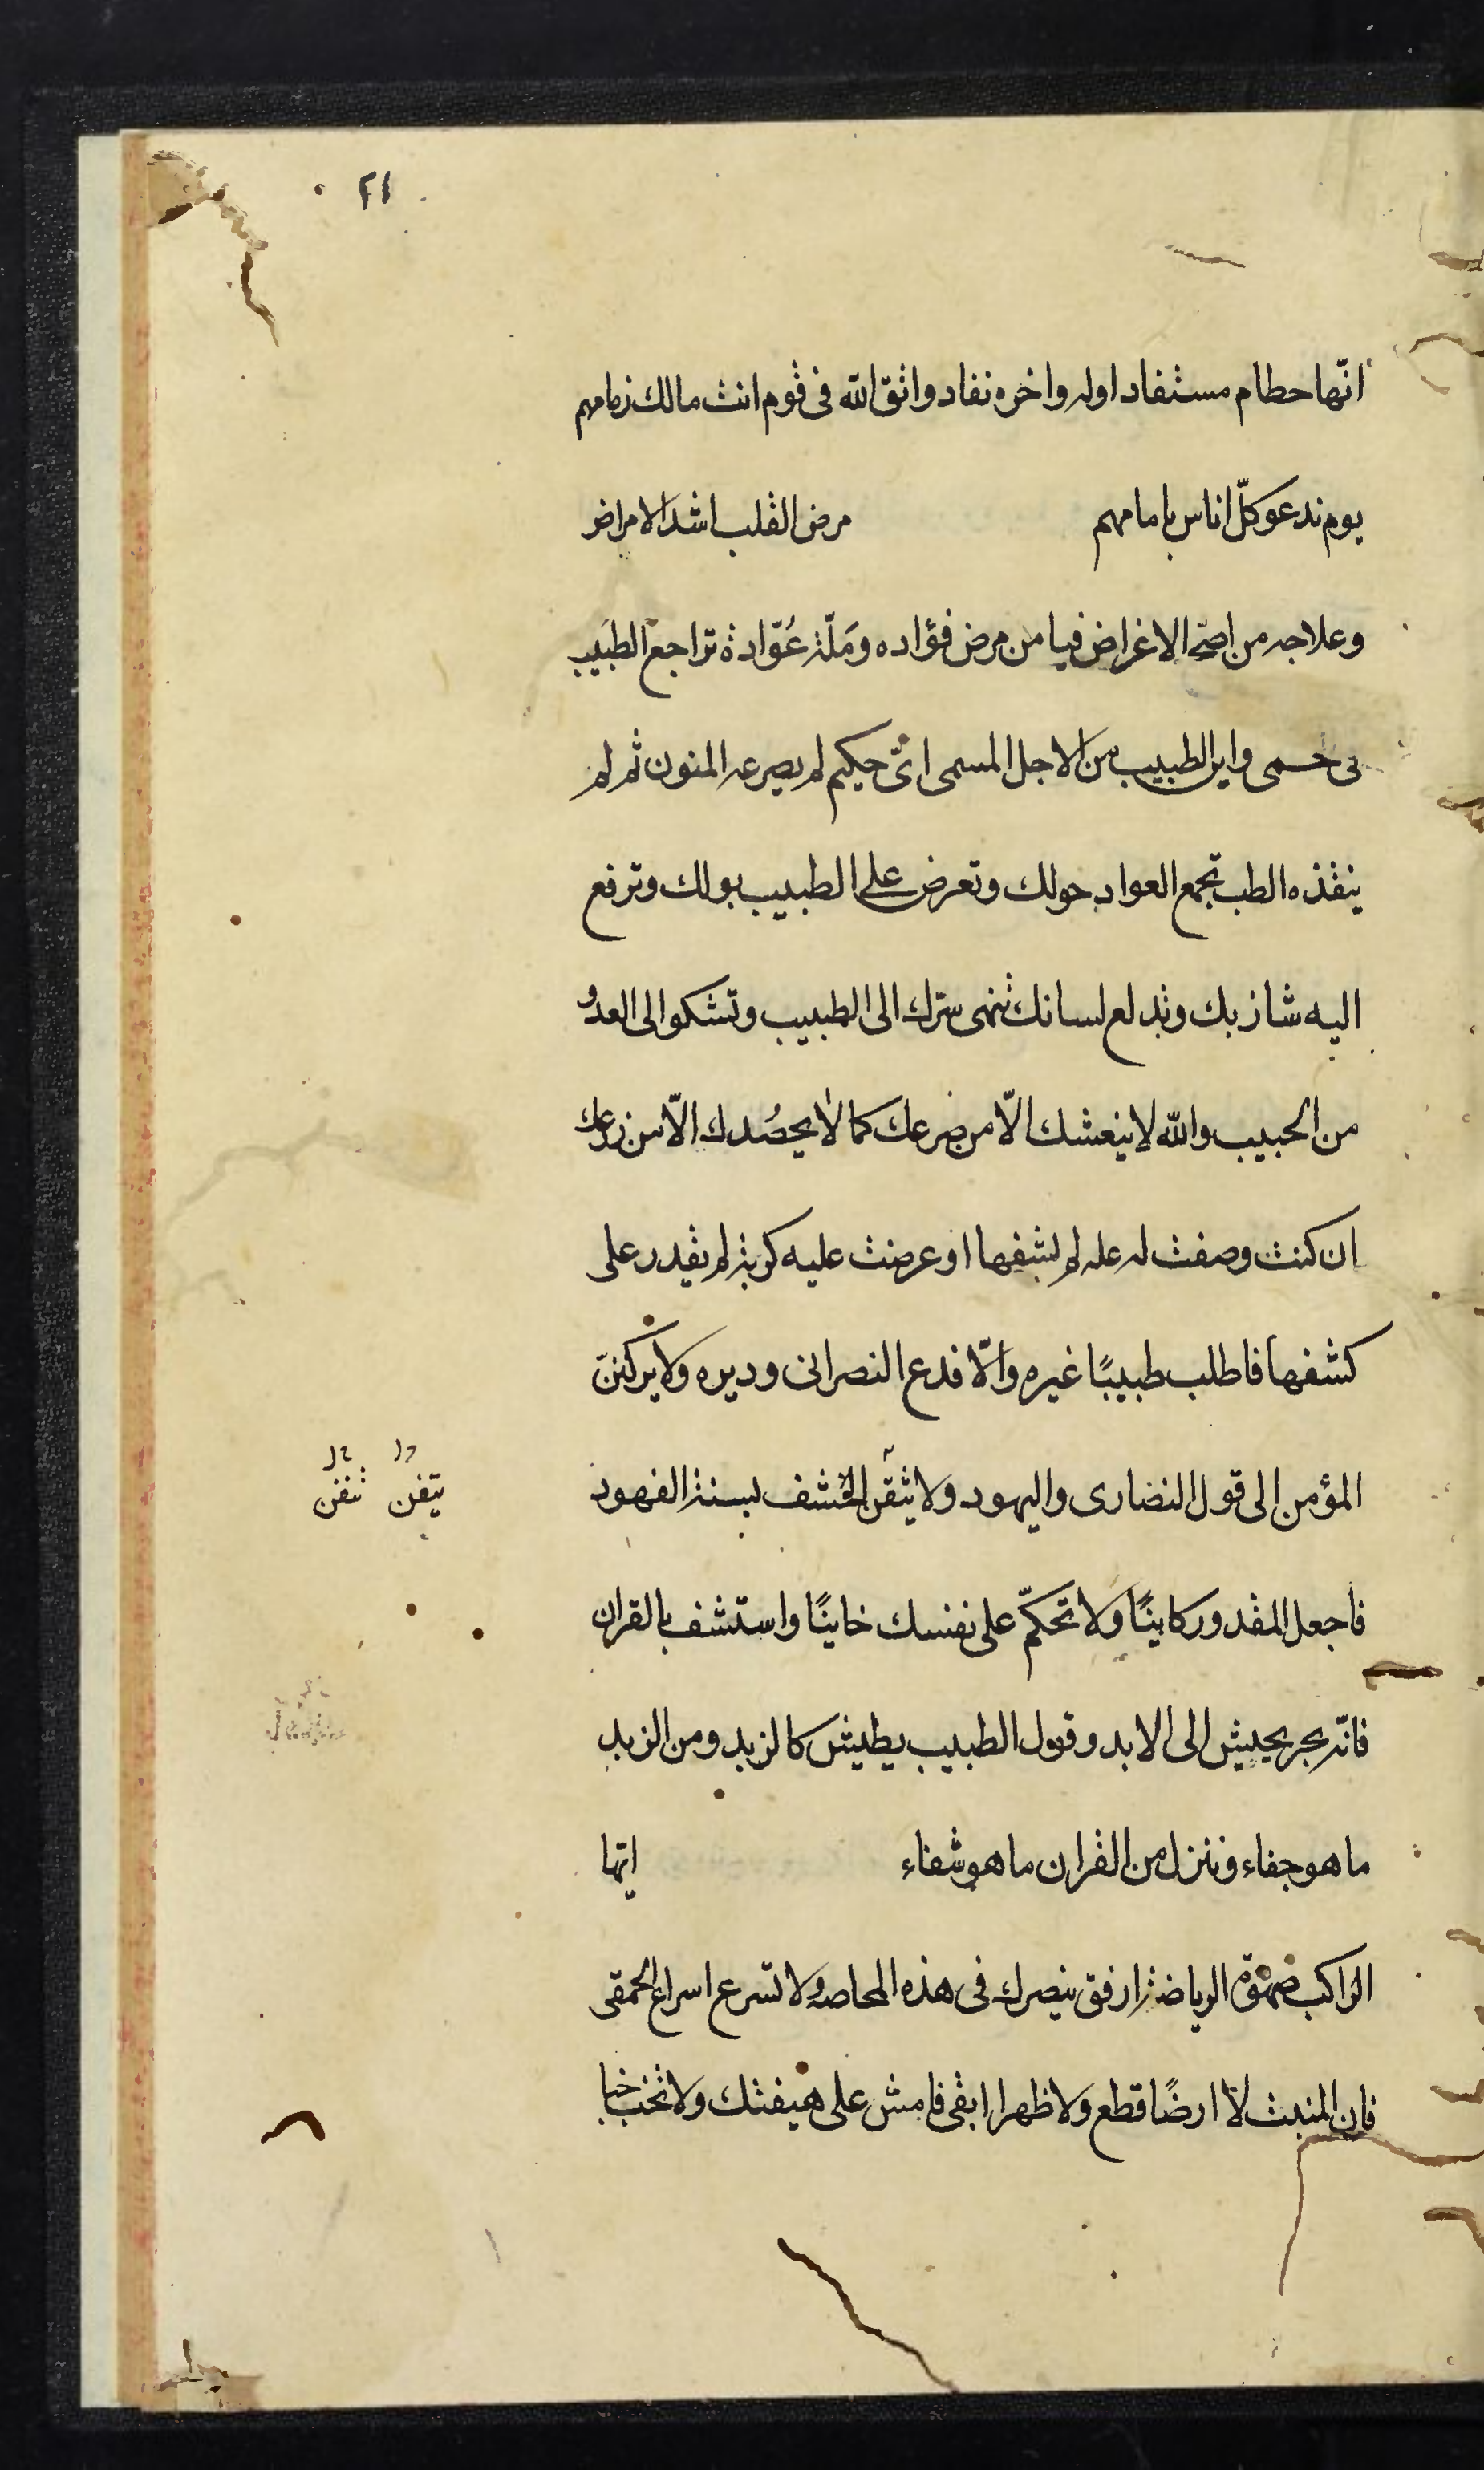 ٢١
انّها حطام مستفاد اوله واخره نفاد واتق الله فى قوم انت مالك زمامهم
يوم ندعو كلّ اناس بامامهم مرض القلب اشد الامراض
وعلاجه من اصحّ الاغراض فيا من مرض فؤاده وملّة عُوّاده تراجع الطبيب
فى حمى واين الطبيب من الاجل المسمى اىّ حكيم لم يصرعه المنون ثم لم
ينقذه الطب تجمع العواد حولك وتعرض على الطبيب بولك وترفع
اليه شازبك وتدلع لسانك تنهى سرّك الى الطبيب وتشكو الى العدو
من الحبيب والله لا ينعشك الّا من صرعك كما لا يحصُدك الّا من زرعك
ان كنت وصفت له علة لم يشفها او عرضت عليه كربة لم يقدر على
كشفها فاطلب طبيبًا غيره والّا فدع النصرانى وديره ولا يركننّ
المؤمن الى قول النصارى واليهود ولا يثقن الخشف بسنة الفهود
يتقن تثقن
فاجعل المقدور كاينًا ولا تحكّم على نفسك خاينًا واستشف بالقران
فانّه بحر يجيش الى الابد وقول الطبيب يطيش كالزبد ومن الزبد
ما هو جفاء وننزل من القران ما هو شفاء ايّها
الراكب صهوة الرياضة ارفق بنصرك فى هذه ولا تسرع اسراع الحمقى
فان المنبت لا ارضًا قطع ولا ظهرا ابقى فامش على هينتك ولا تخب خبا